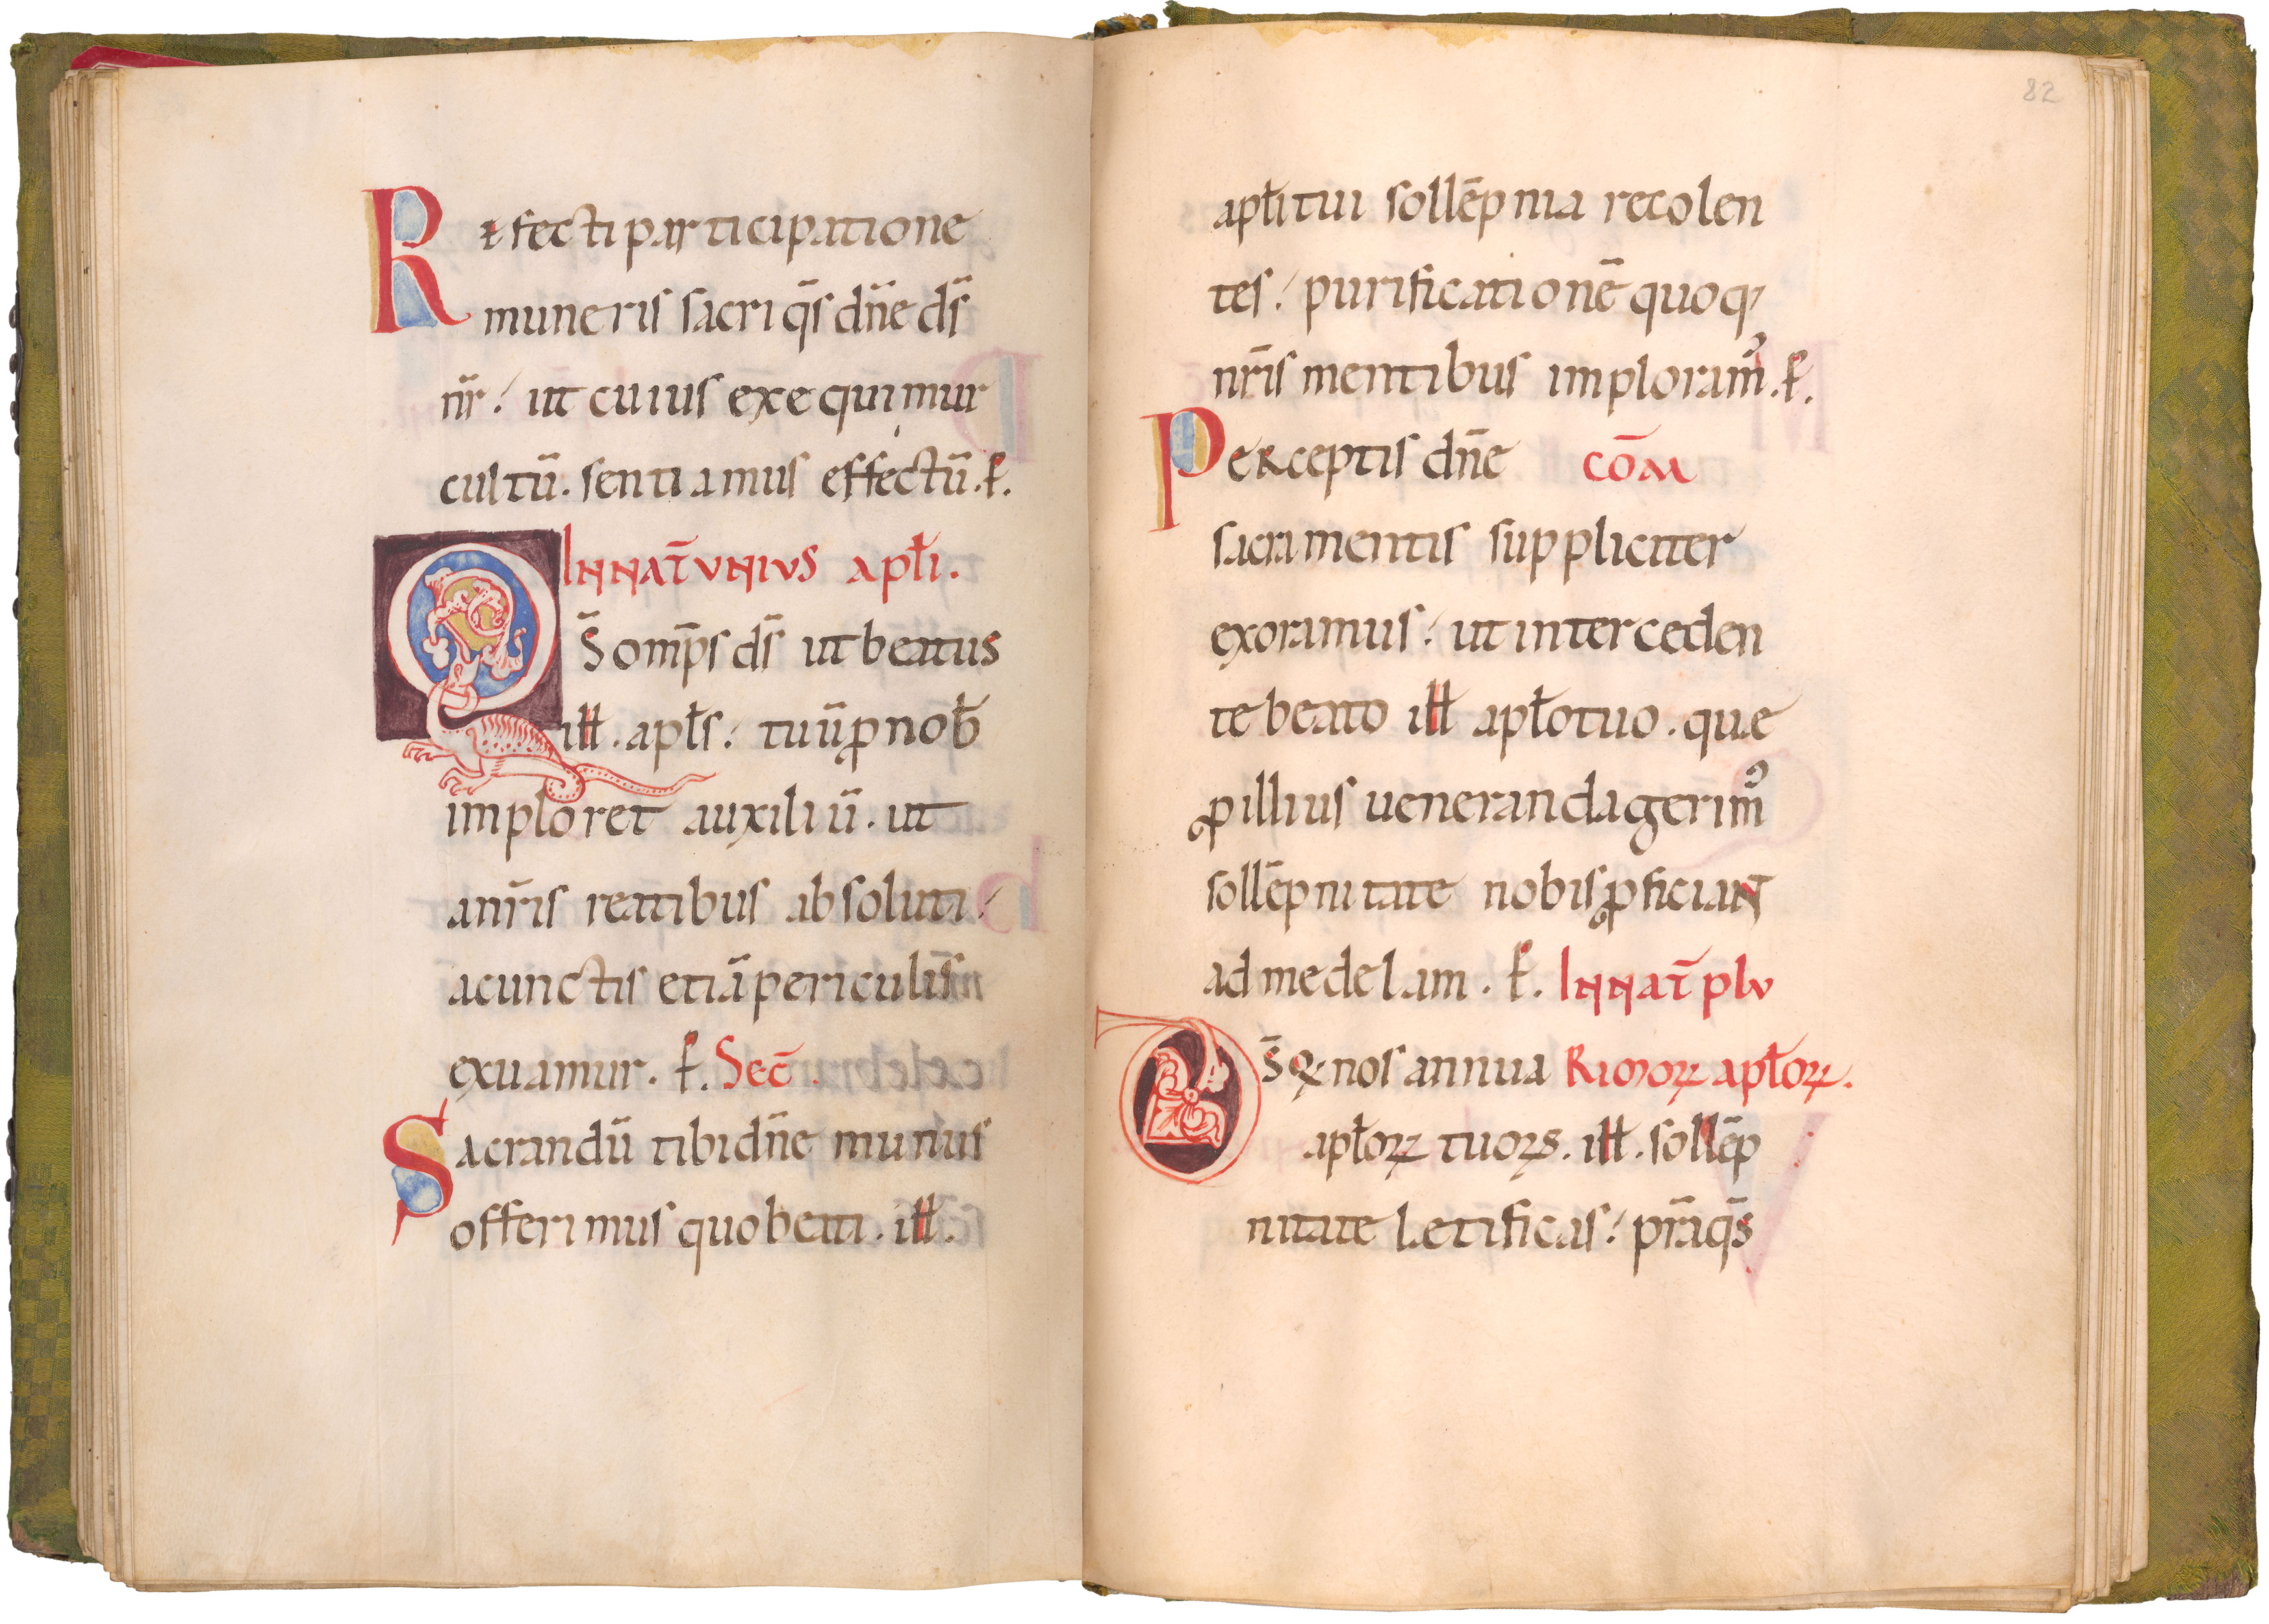 Refecti participatione
muneris sacri q̄s dn̄e ds̄
nr̄ ut cuius exequimur
cultū. sentiamus effectū. ꝑ.
In nat̄ unius apłi.
Qs̄ omp̄s ds̄ ut beatus
ił̄ł. apłs tuū ꝓ nob̄
imploret auxiliū. ut
a nr̄is reatibus absoluti
a cunctis etiā periculis
exuamur. ꝑ. Sec̄.
Sacrandū tibi dn̄e munus
offerimus quo beati. iłł.
82
apłi tui sollēpnia recolen
tes purificationē quoq;
nr̄is mentibus imploram᷒. ꝑ.
Perceptis dn̄e com̄
sacramentis suppliciter
exoramus ut interceden
te beato iłł apło tuo. que
ꝓ illius ueneranda gerim᷒
sollēpnitate nobis ꝓficiant
ad medelam. ꝑ. In nat̄ plu
Ds̄ q nos annua rimoꝝ apłoꝝ.
apłoꝝ tuoꝝ. iłł. sollēp
nitate letificas pr̄a q̄s